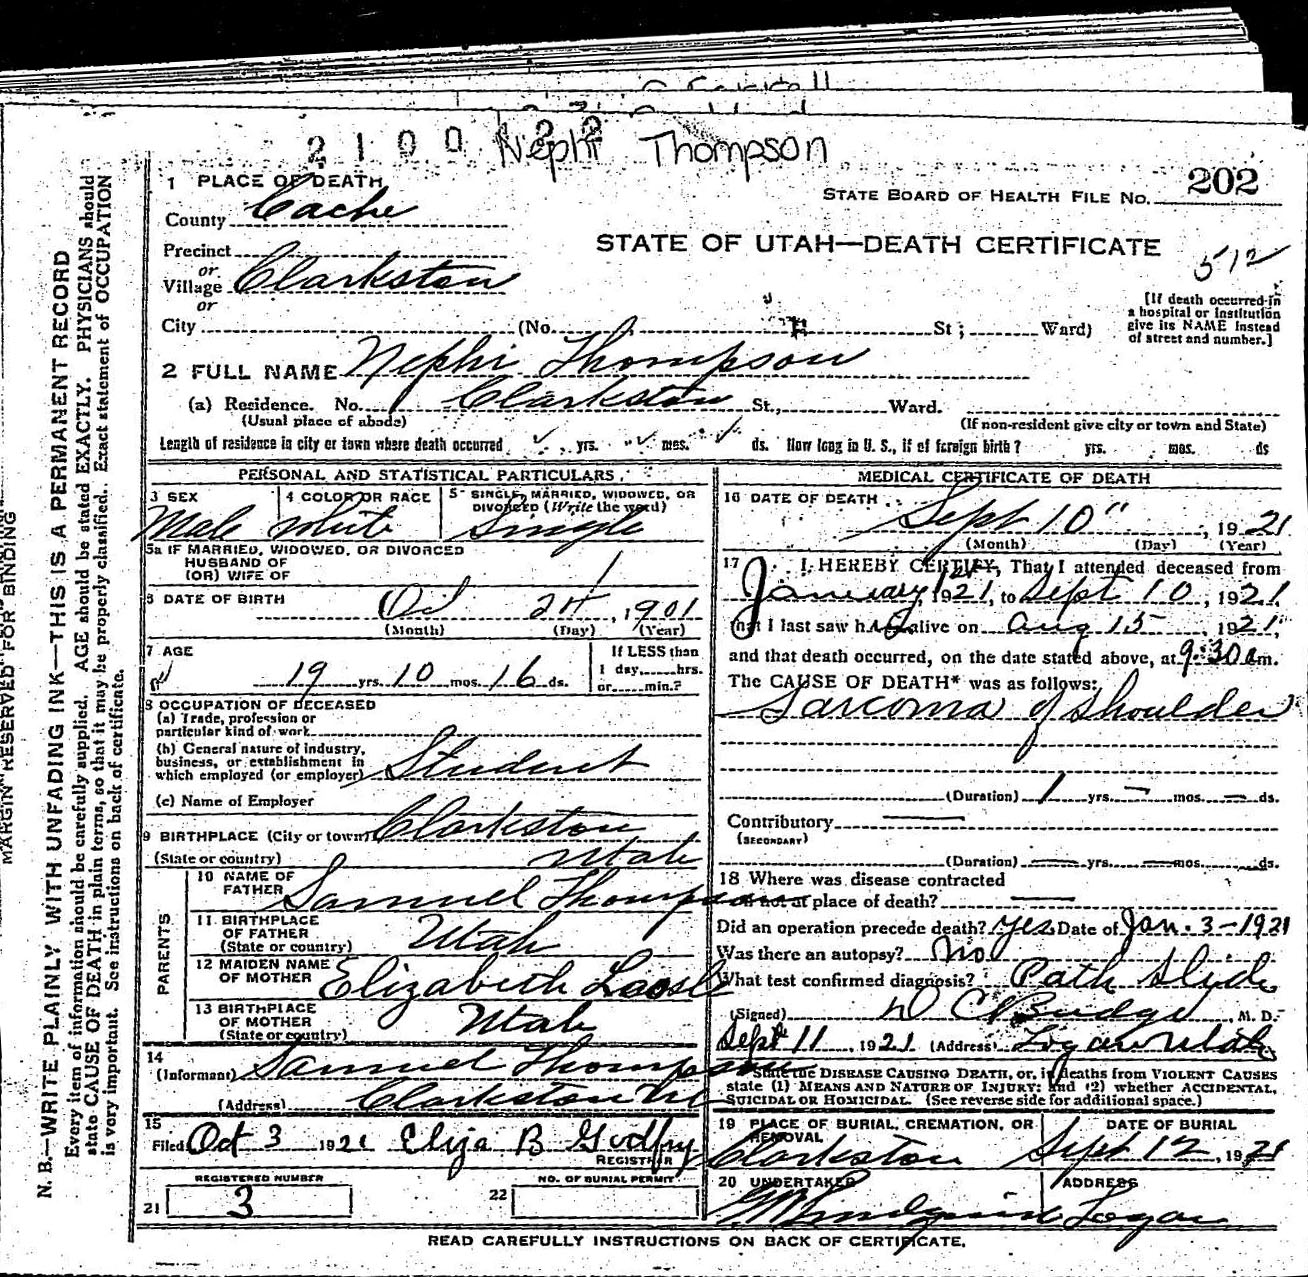 2 1 0 0 2 2 Nephi Thompson
1 PLACE OF DEATH
STATE BOARD OF HEALTH FILE NO. 202
County Cache
STATE OF UTAH—DEATH CERTIFICATE
512
Precinct
or
Village Clarkston
or
[If death occurred in
a hospital or institution
give its NAME instead
of street and number.]
City (No. St; Ward)
2 FULL NAME Nephi Thompson
(a) Residence. No. Clarkston St., Ward.
(Usual place of abode) (If non-resident give city or town and State)
Length of residence in city or town where death occurred yrs. mos. ds. How long in U. S., if of foreign birth? yrs. mos. ds
PERSONAL AND STATISTICAL PARTICULARS
3 SEX 4 COLOR OR RACE 5 SINGLE, MARRIED, WIDOWED, OR
DIVORCED (Write the word)
Male White Single
5a IF MARRIED, WIDOWED, OR DIVORCED
HUSBAND OF
(OR) WIFE OF
6 DATE OF BIRTH 24, 1901
(Month) (Day) (Year)
7 AGE If LESS than
19 yrs. 10 mos. 16 ds. 1 day, hrs.
or min.?
8 OCCUPATION OF DECEASED
(a) Trade, profession or
particular kind of work
(b) General nature of industry,
business, or establishment in
which employed (or employer) Student
(c) Name of Employer
9 BIRTHPLACE (City or town) Clarkston
(State or country) Utah
PARENTS
10 NAME OF
FATHER Samuel Thompson
11 BIRTHPLACE
OF FATHER
(State or country) Utah
12 MAIDEN NAME
OF MOTHER Elizabeth Loosle
13 BIRTHPLACE
OF MOTHER
(State or country) Utah
14
(Informant) Samuel Thompson
(Address) Clarkston Ut
15
Filed Oct 3 1921 Eliza B Godfry
REGISTRAR
REGISTERED NUMBER NO. OF BURIAL PERMIT
21 3 22
MEDICAL CERTIFICATE OF DEATH
16 DATE OF DEATH
Sept 10", 1921
(Month) (Day) (Year)
17 I HEREBY CERTIFY, That I attended deceased from
January 1st, 1921, to Sept 10, 1921,
that I last saw him alive on Aug 15 1921,
and that death occurred, on the date stated above, at 9:30 am.
The CAUSE OF DEATH* was as follows:
Sarcoma of Shoulder
(Duration) 1 yrs. — mos. — ds.
Contributory —
(SECONDARY)
(Duration) — yrs. — mos. ds.
18 Where was disease contracted
if not at place of death? —
Did an operation precede death? yes Date of Jan. 3-1921
Was there an autopsy? No
What test confirmed diagnosis? Path Slide
(Signed) D C Budge, M. D.
Sept 11, 1921 (Address) Logan Utah
*State the DISEASE CAUSING DEATH, or, in deaths from VIOLENT CAUSES
state (1) MEANS AND NATURE OF INJURY; and (2) whether ACCIDENTAL,
SUICIDAL OR HOMICIDAL. (See reverse side for additional space.)
19 PLACE OF BURIAL, CREMATION, OR
REMOVAL DATE OF BURIAL
Clarkston Sept 12, 1921
20 UNDERTAKER ADDRESS
Logan
READ CAREFULLY INSTRUCTIONS ON BACK OF CERTIFICATE.
MARGIN RESERVED FOR BINDING
N. B.—WRITE PLAINLY WITH UNFADING INK—THIS IS A PERMANENT RECORD
Every item of information should be carefully supplied. AGE should be stated EXACTLY. PHYSICIANS should
state CAUSE OF DEATH in plain terms, so that it may be properly classified. Exact statement of OCCUPATION
is very important. See instructions on back of certificate.